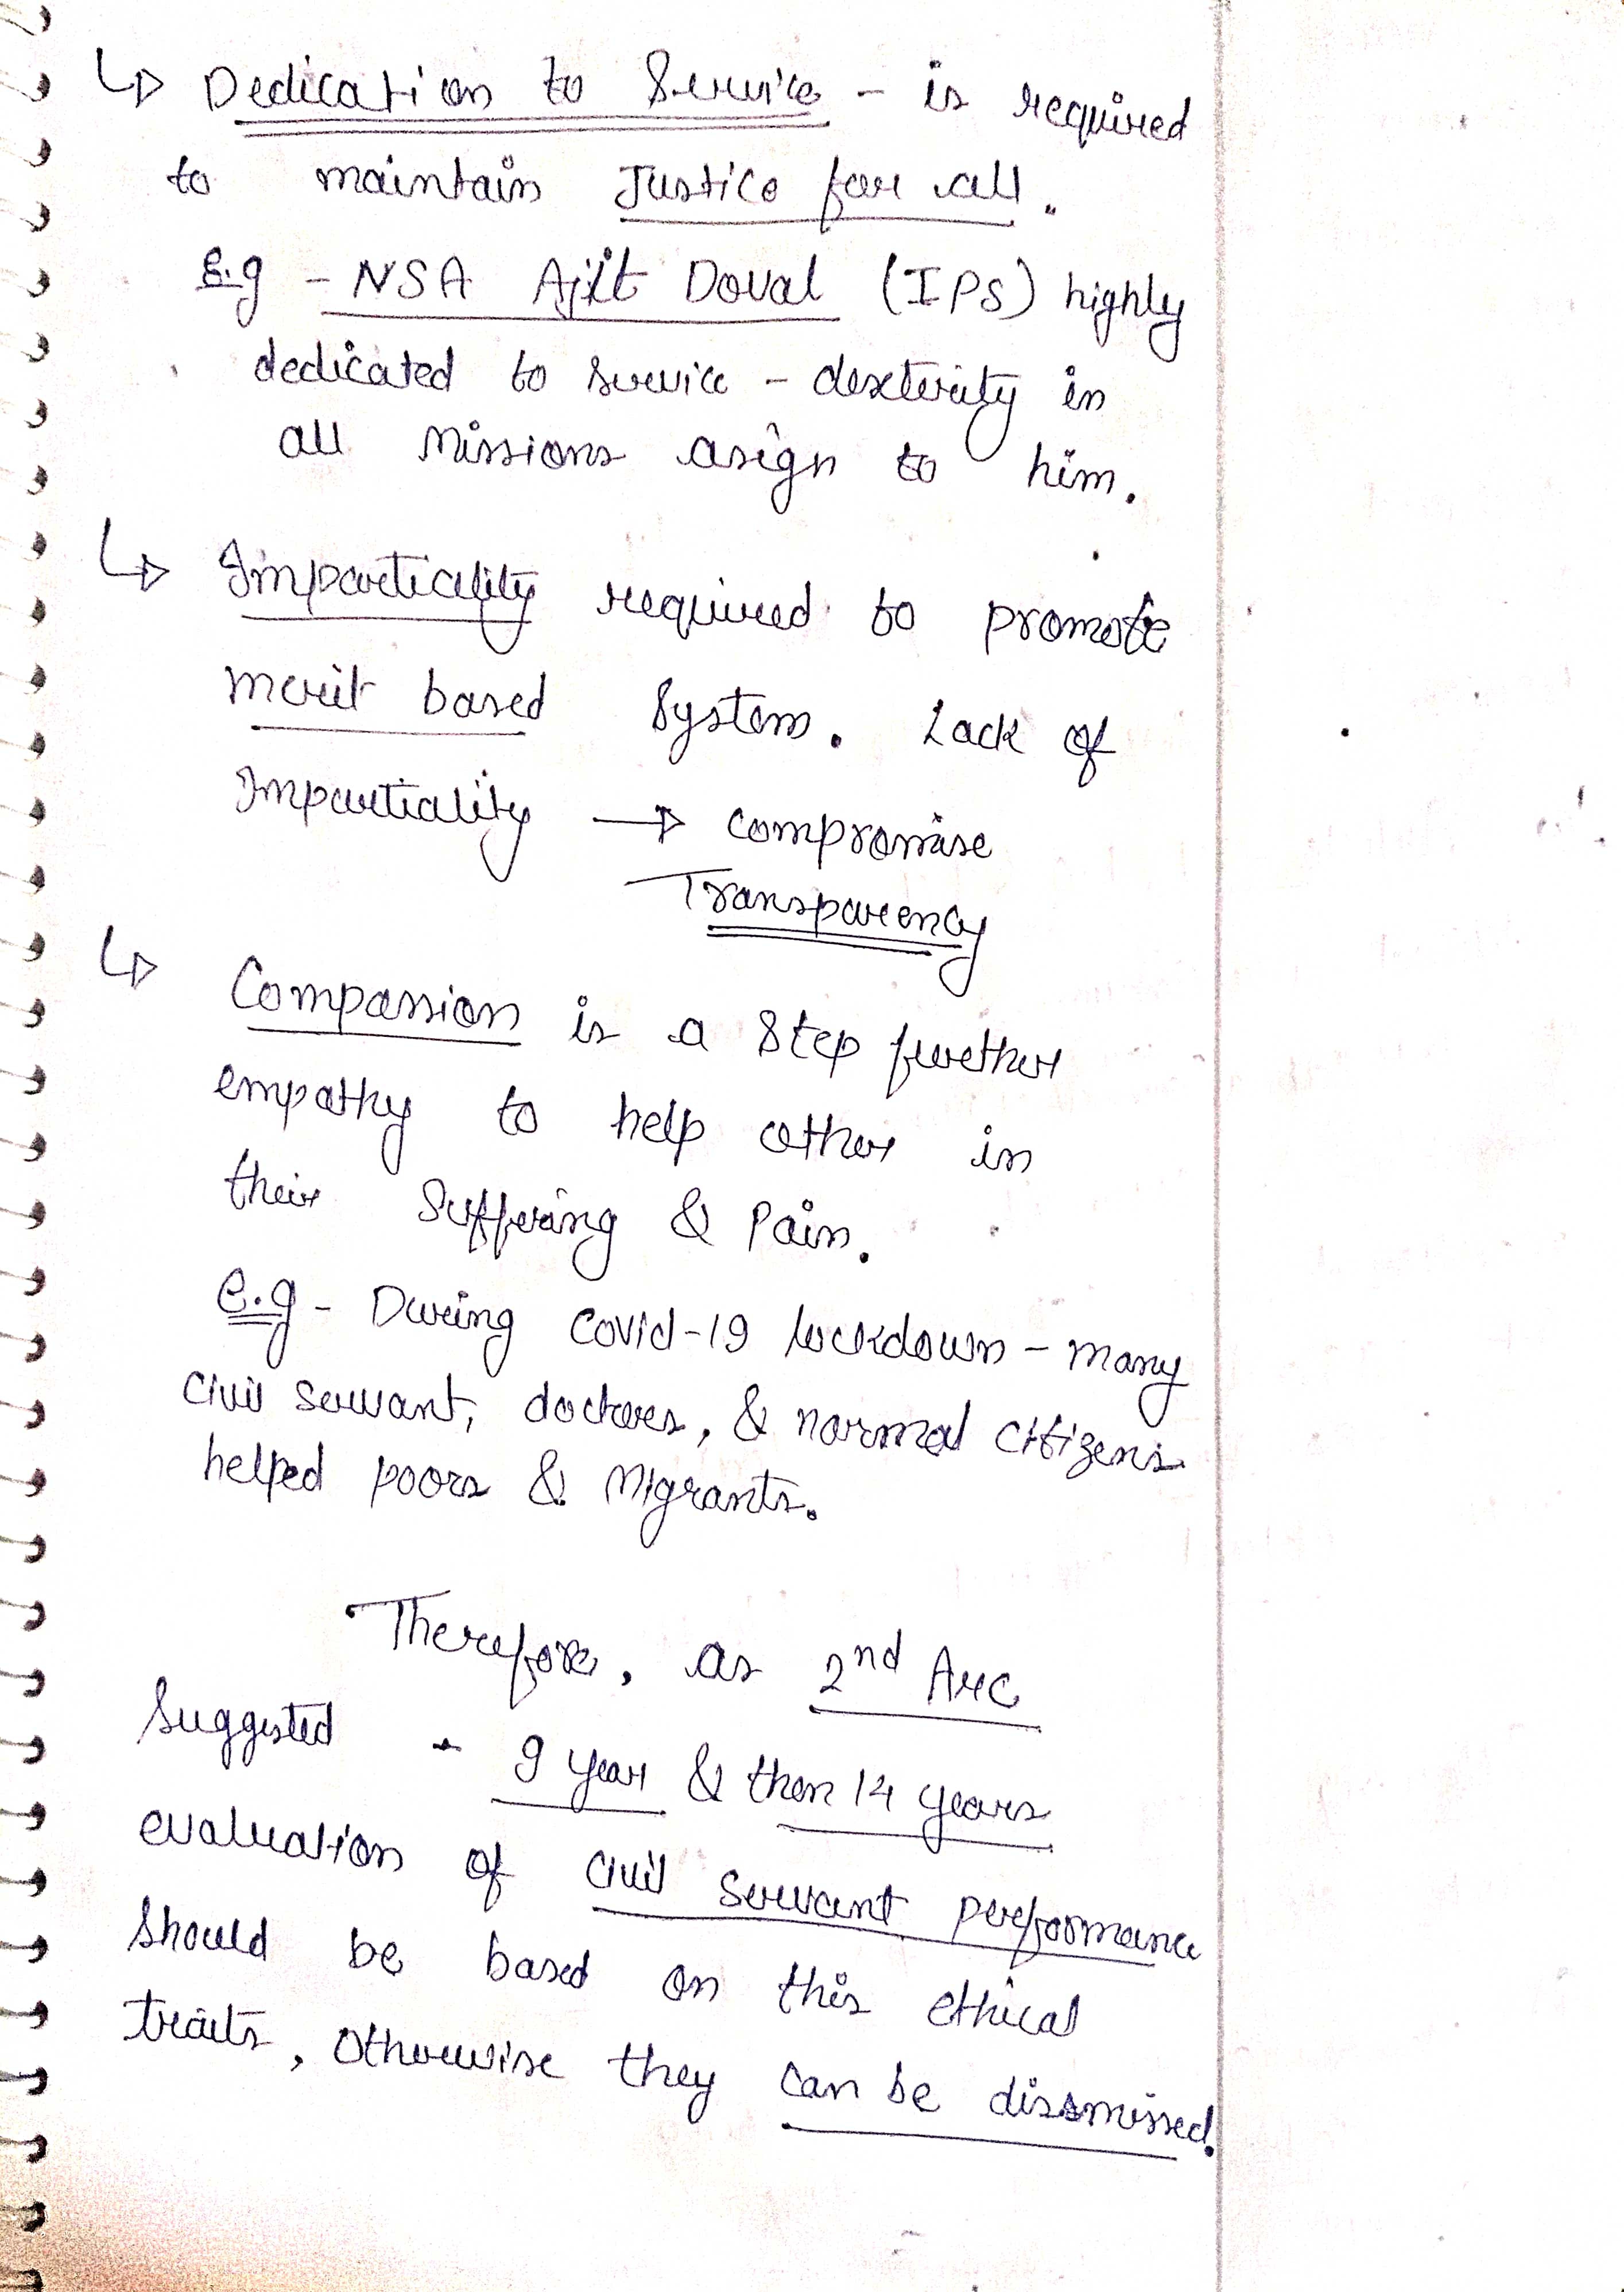 ↳ Dedication to Service - is required
to maintain Justice for all.
E.g - NSA Ajit Doval (IPS) highly
dedicated to service - dexterity in
all Missions asign to him.
↳ Imparticality required to promote
merit based System. Lack of
Impartiality → compromise
Transparency
↳ Compassion is a Step further
empathy to help other in
their Suffering & Pain.
e.g - During Covid-19 lockdown - many
Civil Servant, doctors, & normal citizens
helped poors & Migrants.
Therefore, as 2nd ARC
Suggested - 9 year & then 14 years
evaluation of Civil Servant performance
should be based on this ethical
traits, Otherwise they can be dissmissed.